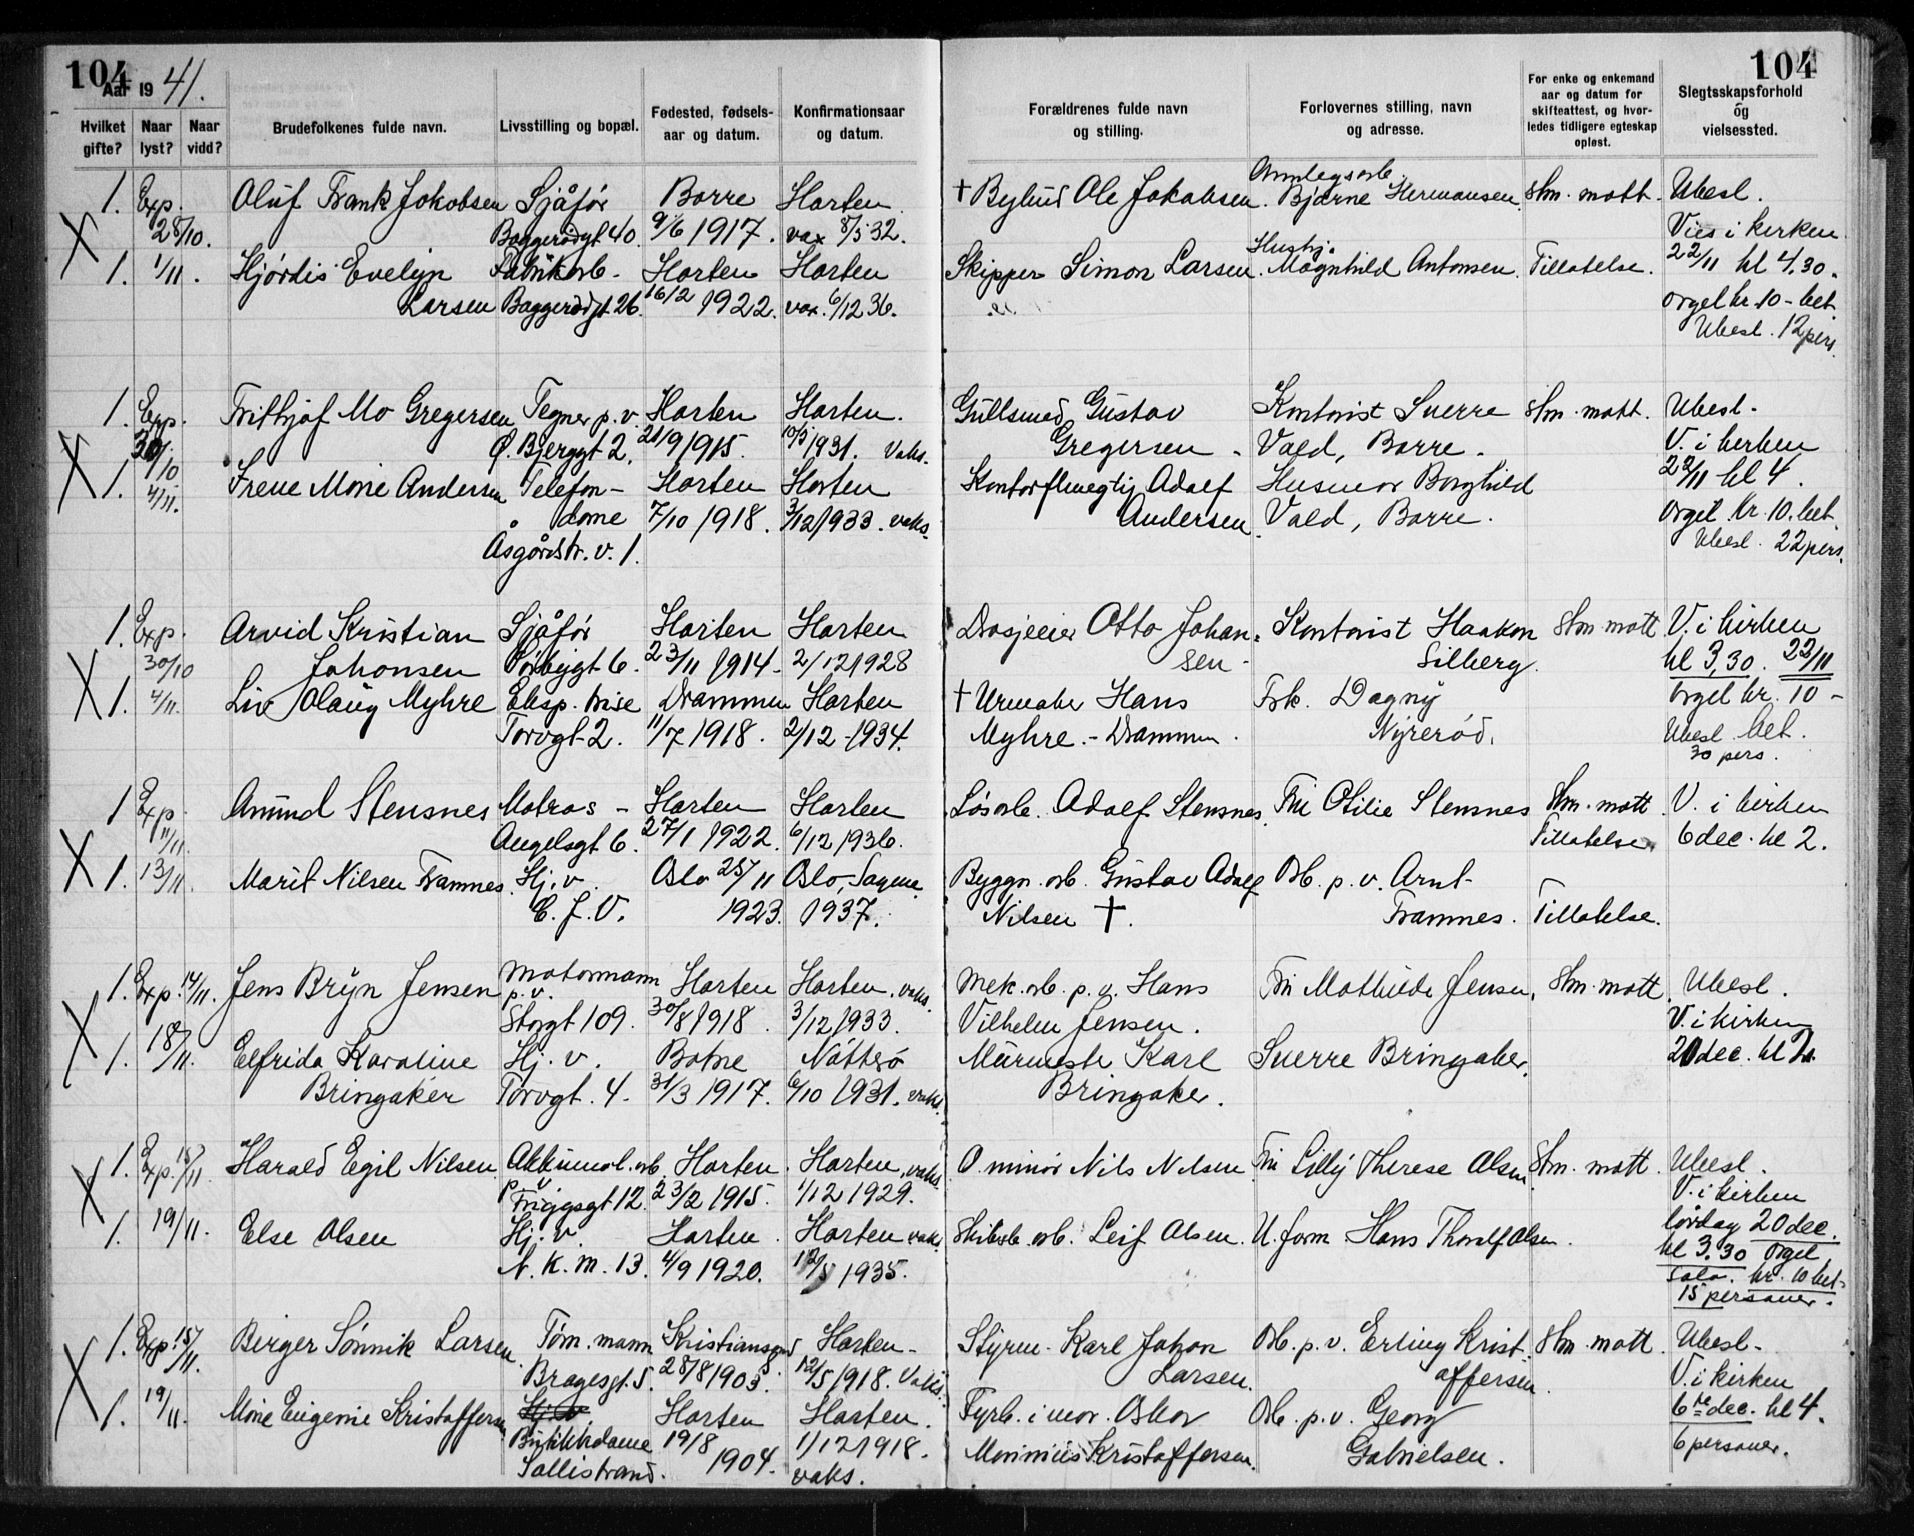 104
Aar 1941.
Hvilket gifte?
Naar lyst?
Naar vidd?
Brudefolkenes fulde navn.
Livsstilling og bopæl.
Fødested, fødsels-
aar og datum.
Konfirmationsaar
og datum.
104
Forældrenes fulde navn
og stilling.
Forlovernes stilling, navn
og adresse.
For enke og enkemand
aar og datum for
skifteattest, og hvor-
ledes tidligere egteskap
opløst.
Slegtsskapsforhold
og
vielsessted.
1. Exp. Oluf Frank Jakobsen Sjåfør Borre Horten
28/10. Baggerødgt 40. 9/6 1917. vax 8/5 32.
1. 1/11. Hjørdis Evelyn Fabrikarb. Horten Horten
Larsen Baggerødgt 26. 16/2 1922. vax. 6/12 36.
† Bybud Ole Jakobsen. Bjarne Hermansen. Skm. mott. Ubesl.
Vies i kirken
Skipper Simon Larsen. Magnhild Antonsen. Tillatelse. 22/11 kl 4.30.
orgel kr. 10 - bet.
Ubesl. 12 pers.
1. Exp. Frithjof Mo Gregersen Tegner p.v. Horten Horten.
30/10 Ø. Bjerggt 2. 21/9 1915. 10/5 1931. vaks.
1. 4/11. Irene Marie Andersen Telefon- Horten Horten
dame 7/10 1918. 3/12 1933. vaks.
Åsgårdstr. v. 1.
Gullsmed Gustav Kontorist Sverre Skm. mott. Ubesl.
Gregersen. Vald, Borre. V. i kirken
Kontorfullmegtig Adolf Husmor Borghild 22/11 kl 4.
Andersen. Vald, Borre. orgel kr. 10. bet.
Ubesl. 22 pers.
1. Exp. Arvid Kristian Sjåfør Horten Horten
30/10 Johansen 6. 23/11 1914. 2/12 1928
1. 4/11. Liv Olaug Myhre Eksp. trise Drammen Horten
Torvgt 2. 11/7 1918. 2/12 - 1934.
Drosjeeier Otto Johan- Kontorist Haakon Skm mott V. i kirken
sen. Silberg. kl 3,30. 22/11
† Urmaker Hans Frk. Dagny orgel kr. 10 -
Myhre. - Drammen. Nyrerød. Ubesl. bet.
30 pers.
1 Exp. Amund Stensnes Matros - Horten Horten
11/11. Angelsgt 6. 27/1 1922. 6/12 1936.
1. 13/11. Marit Nilsen Framnes. Hj. v. Oslo 25/11 Oslo, Sagene
C. J. V. 1923. 1937.
Løsarb. Adolf Stensnes. Fru Otilie Stensnes Skm. mott. V. i kirken
Tillatelse. 6 dec. kl 2.
Byggn. arb. Gustav Adolf Arb. p. v. Arnt
Nilsen †. Framnes. Tillatelse.
1. Exp. 14/11. Jens Bryn Jensen Motormann Horten Horten. vaks.
p.v. Storgt 109. 30/8 1918. 3/12 1933.
1. 18/11. Elfrida Karoline Hj. v. Botne Nøtterø
Bringaker Torvgt. 4. 31/3 1917. 6/10 1931. vaks.
Mek. arb. p. v. Hans Fru Mathilde Jensen. Skm. mott. Ubesl.
Vilhelm Jensen. V. i kirken
Murmester Karl Sverre Bringaker. 20 dec. kl 2.
Bringaker.
1. Exp. 15/11. Harald Egil Nilsen. Akkumul. arb. Horten. Horten. vaks.
p v Friggsgt 12. 23/2 1915. 1/12 1929.
1. 19/11. Else Olsen Hj. v. Horten. Horten vaks.
N. K. M. 13. 4/9 1920. 12/5 1935.
O. minør Nils Nilsen Fru Lilly Therese Olsen Skm. mott. Ubesl.
V. i kirken
arb. Leif Olsen. U. form. Hans Thoralf Olsen. lørdag 20 dec.
kl 3.30 orgel
solo. kr. 10 bet.
15 personer.
1. Exp. 15/11. Birger Sønnik Larsen. Tøm. mann Kristiansand S. Horten -
Bragesgt. 5. 28/8 1903. 12/5 1918. vaks.
1. 19/11. Marie Eugenie Kristoffersen Hj. v. Horten Horten.
Butikkdame 19/8 1904. 1/12 1918.
Sollistrand. vaks.
Styrm. Karl Johan Arb. p. v. Erling Krist- Skm. mott. Ubesl.
Larsen. offersen. V. i kirken
Fyrb. i mar. Oskar Arb. p. v. Georg 6te dec. kl 4.
Kristoffersen. Gabrielsen. 6 personer.